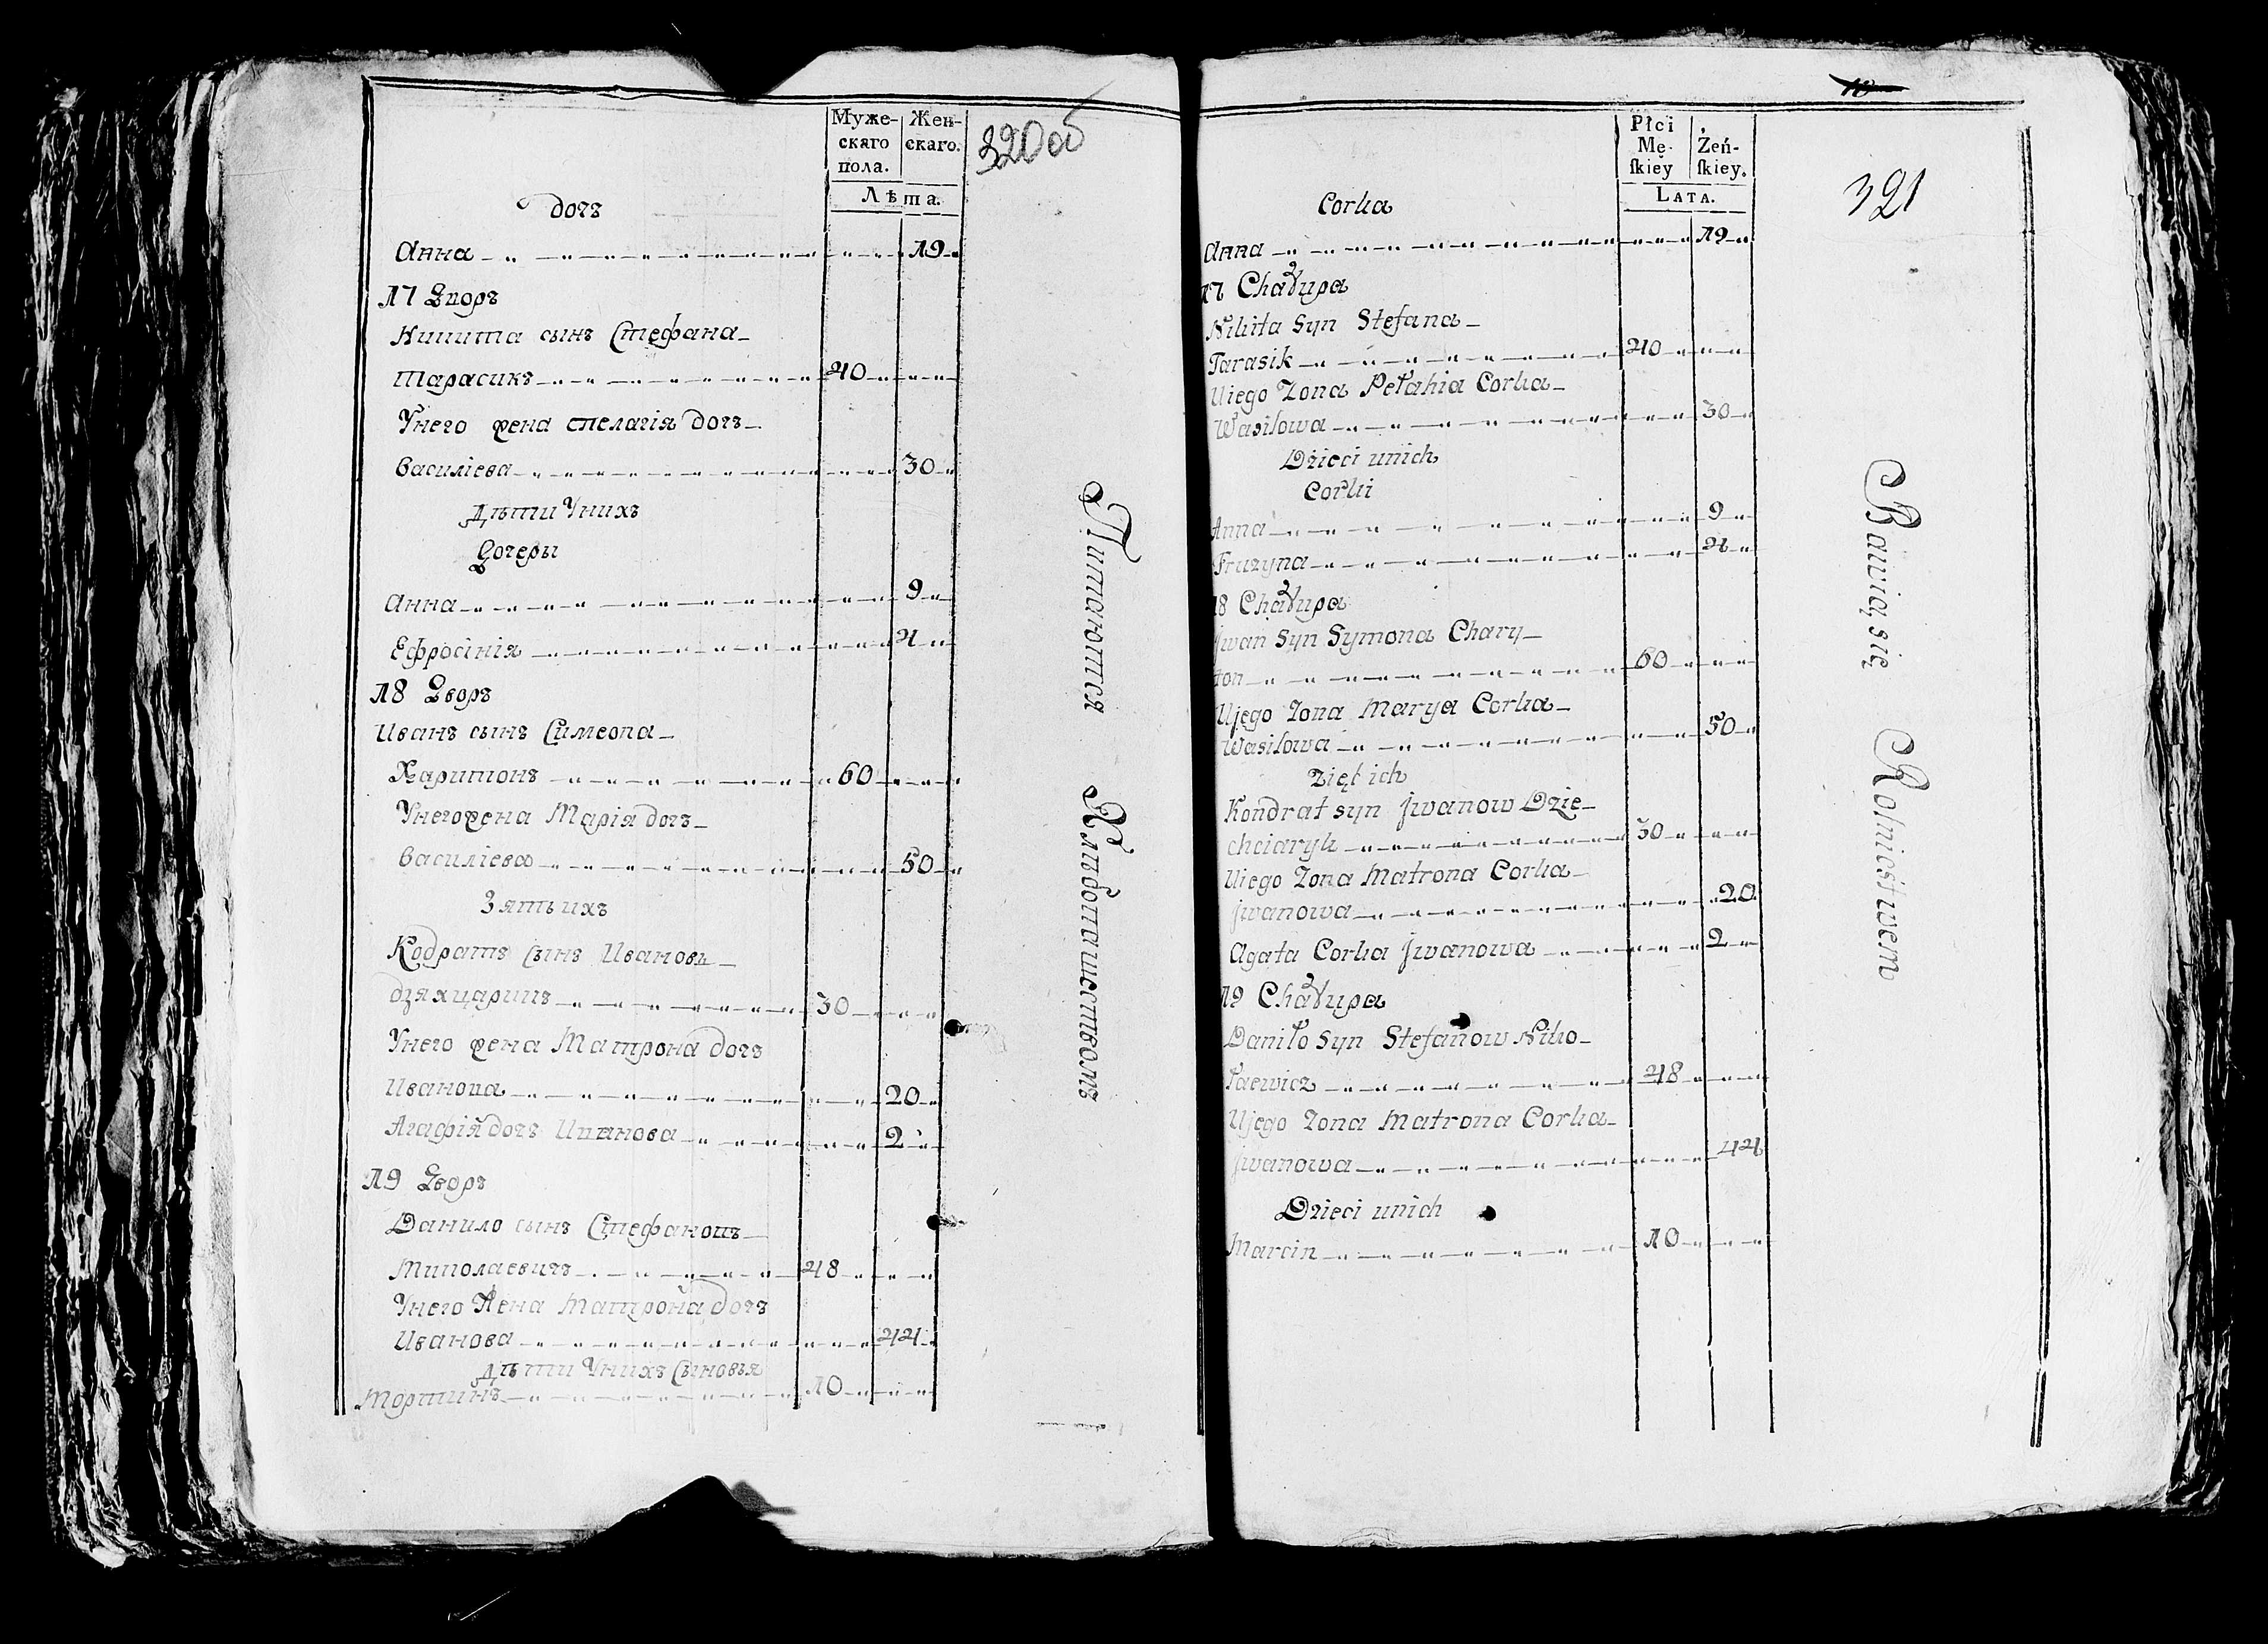 Муже-
скаго
пола.
Жен-
скаго.
320 об
Лѣта.
дочъ
Анна 19
17 Дворъ
Никита сынъ Стефана
Тарасикъ 40
Унего жена Пелагія дочъ
Василіева 30
Дѣти Унихъ
Дочеры
Анна 9
Ефросінія 4
18 Дворъ
Иванъ сынъ Симеона
Харитонъ 60
Унего жена Марія дочъ
Василіева 50
Зять ихъ
Кодратъ сынъ Ивановъ
дзяхцарикъ 30
Унего жена Матрона дочъ
Иванова 20
Агафія дочъ Иванова 2
19 Дворъ
Данило сынъ Стефановъ
Миколаевичъ 48
Унего Жена Матрона дочъ
Иванова 44
Дѣти Унихъ Сыновья
Мортинъ 10
Питаются Хлѣбопашествомъ
Płci
Mę-
ſkiey
Żeń-
ſkiey.
321
Lata.
Corka
Anna 19
17 Chałupa
Nikita Syn Stefana
Tarasik 40
Uiego Zona Pełahia Corka
Wasilowa 30
Dzieci unich
Corki
Anna 9
Fruzyna 4
18 Chałupa
Jwan Syn Symona Chary
ton 60
Ujego Zona Marya Corka
Wasilowa 50
Zięt ich
Kondrat syn Jwanow Dzie
chciaryk 30
Uiego Zona Matrona Corka
Jwanowa 20
Agata Corka Jwanowa 2
19 Chałupa
Daniło Syn Stefanow Niko
łaewicz 48
Ujego Zona Matrona Corka
Jwanowa 44
Dzieci unich
Marcin 10
Bawią się Rolnictwem